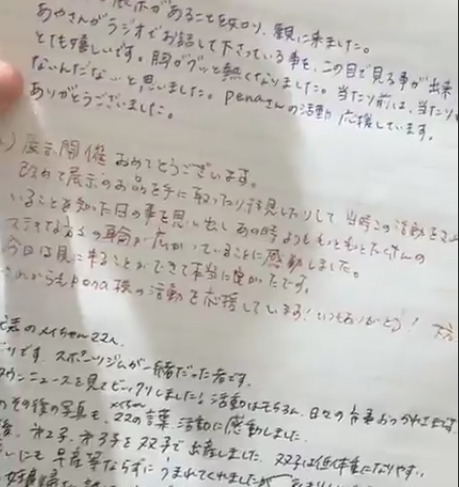 展示があることを知り、観に来ました。
あやさんがラジオでお話して下さっている事を、この目で見る事が出来
とても嬉しいです。胸がグッと熱くなりました。当たり前は、当たり
ないんだな…と思いました。penaさんの活動 応援しています。
ありがとうございました。
展示開催 おめでとうございます。
改めて展示のお品を手に取ったり拝見したりして 当時この活動を
いることを知った日の事を思い出し あの時よりももっともっとたくさんの
ステキな の輪が広がっていることに感動しました。
今日は見に来ることができて本当に良かったです。
これからもpena様の活動を応援しています! いつもありがとう!
のメイちゃん22
です。スポーツジムが一緒だった者です。
タウンニュースを見てビックリしました! 活動はもちろん、日々の
その後の写真も、22の言葉、活動に感動しました。
後、第2子、第3子を双子で出産しました。双子は低体重になりやすい
にも早産等ならずに うまれてくれましたが